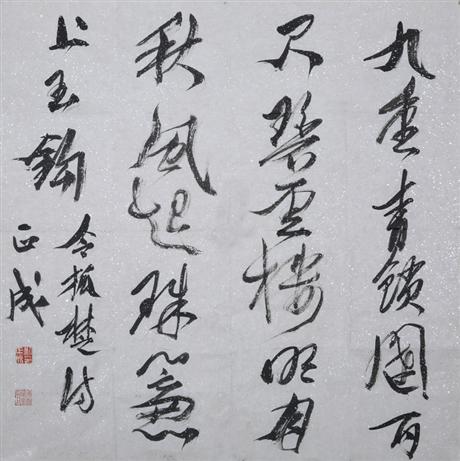 九重青鎖闥百
尺碧雲樓明月
秋風起珠簾
上玉鉤
令狐楚詩
正成